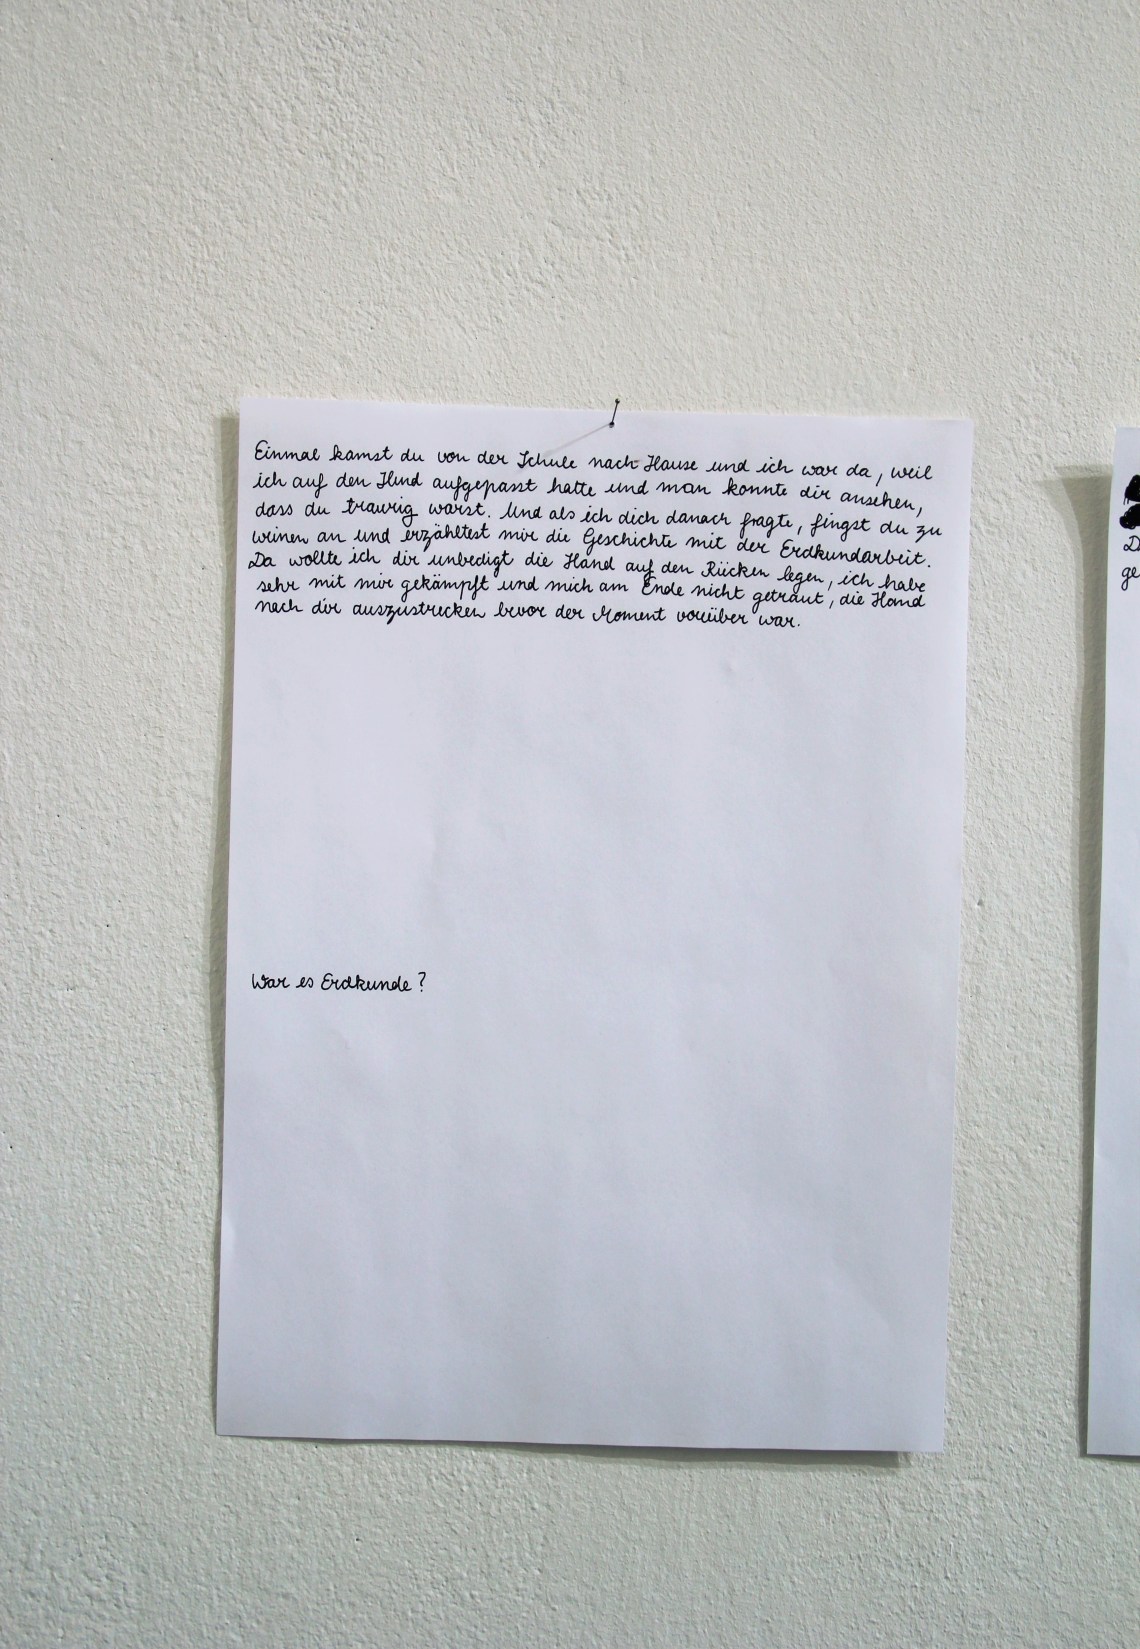 Einmal kamst du von der Schule nach Hause und ich war da, weil
ich auf den Hund aufgepasst hatte und man konnte dir ansehen,
dass du traurig warst. Und als ich dich danach fragte, fingst du zu
weinen an und erzähltest mir die Geschichte mit der Erdkundarbeit.
Da wollte ich dir unbedigt die Hand auf den Rücken legen, ich habe
sehr mit mir gekämpft und mich am Ende nicht getraut, die Hand
nach dir auszustrecken bevor der Moment vorüber war.
War es Erdkunde?
ge